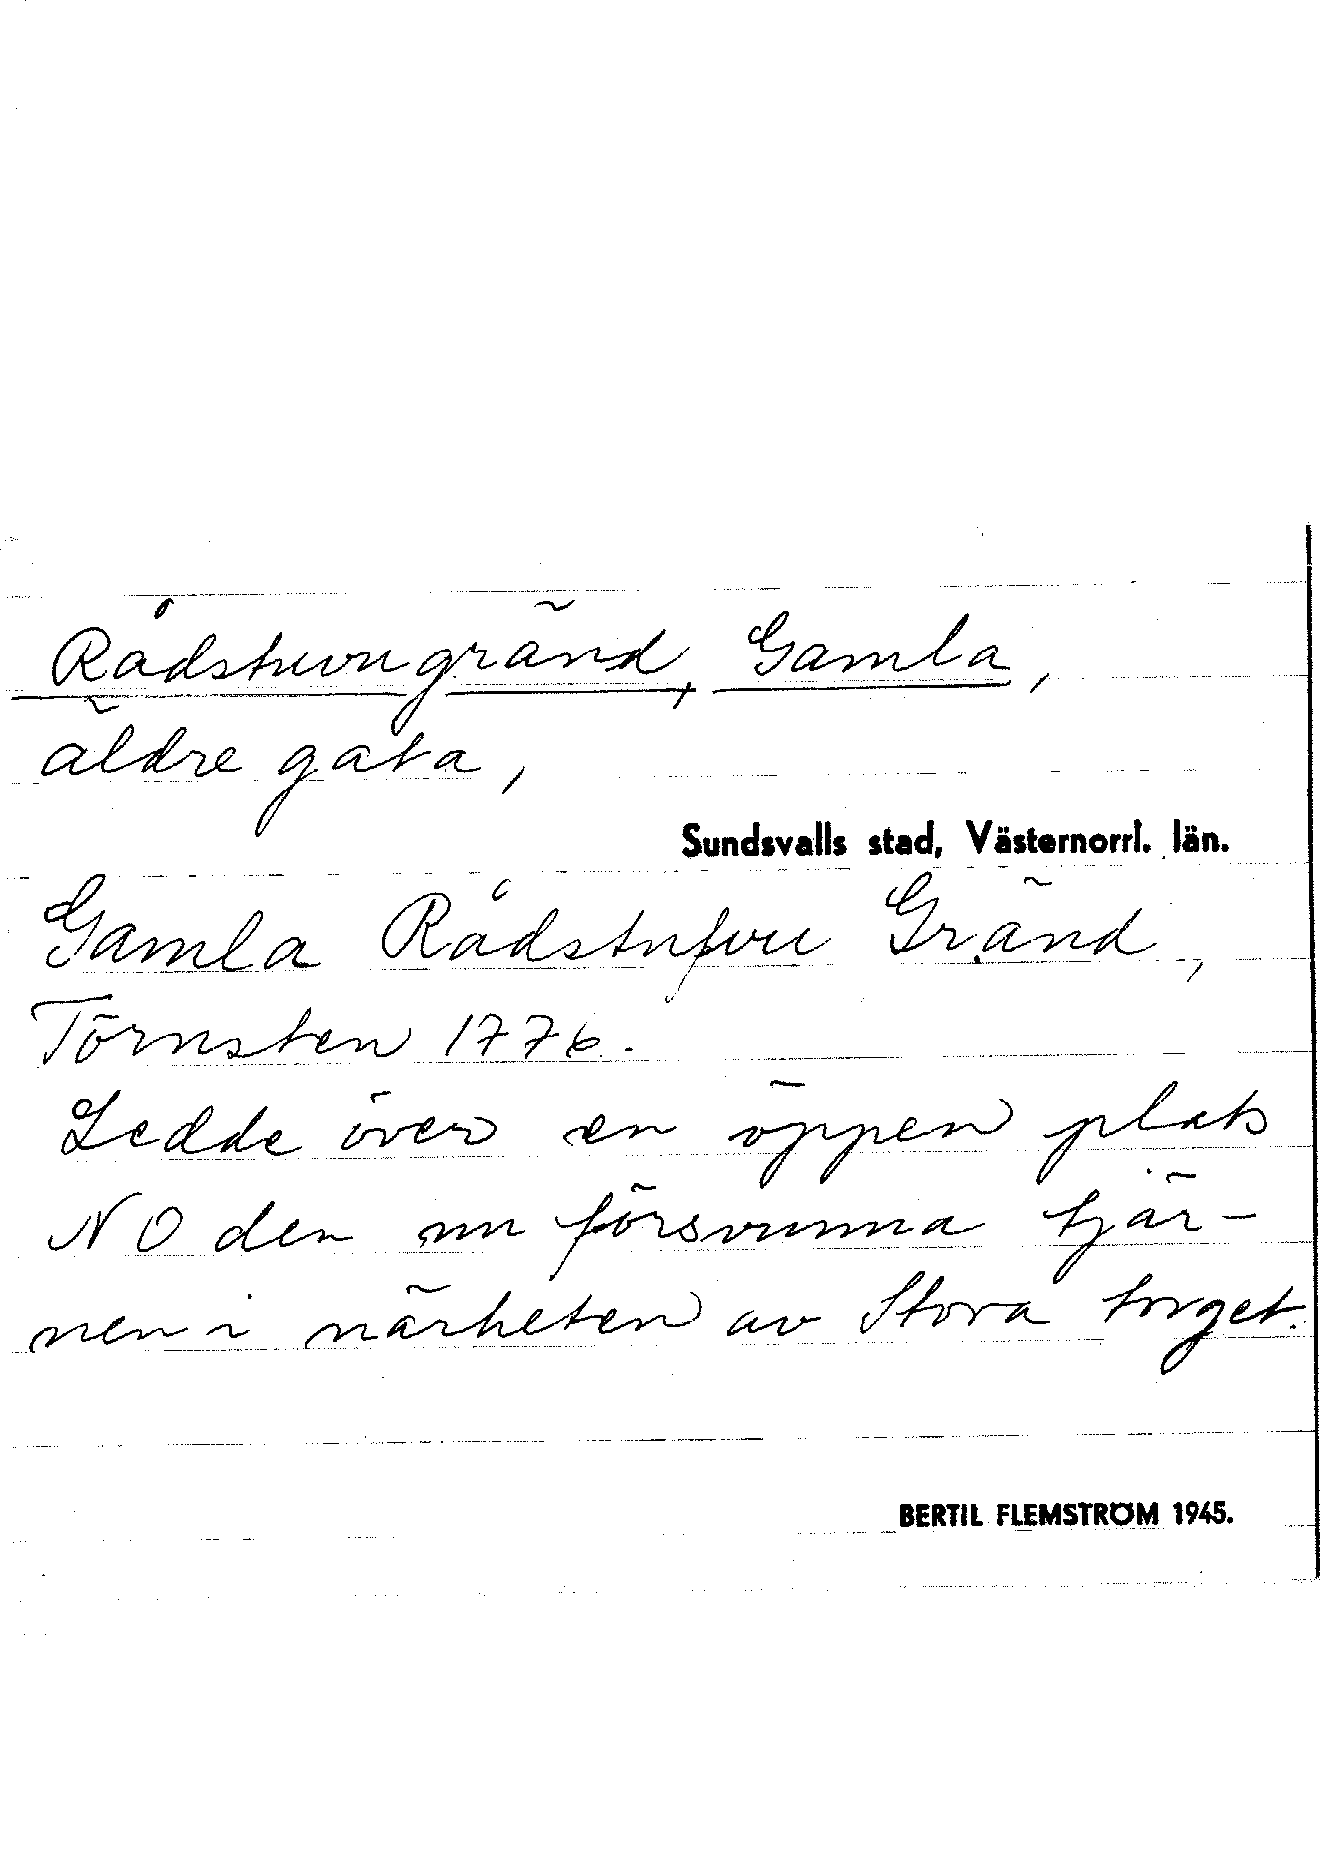 Rådstuvugränd, Gamla,
äldre gata,
Sundsvalls stad, Västernorrl. län.
Gamla Rådstufvu Gränd,
Törnsten 1776.
Ledde över en öppen plats
NO den nu försvunna tjär-
nen i närheten av Stora torget.
BERTIL FLEMSTRÖM 1945.